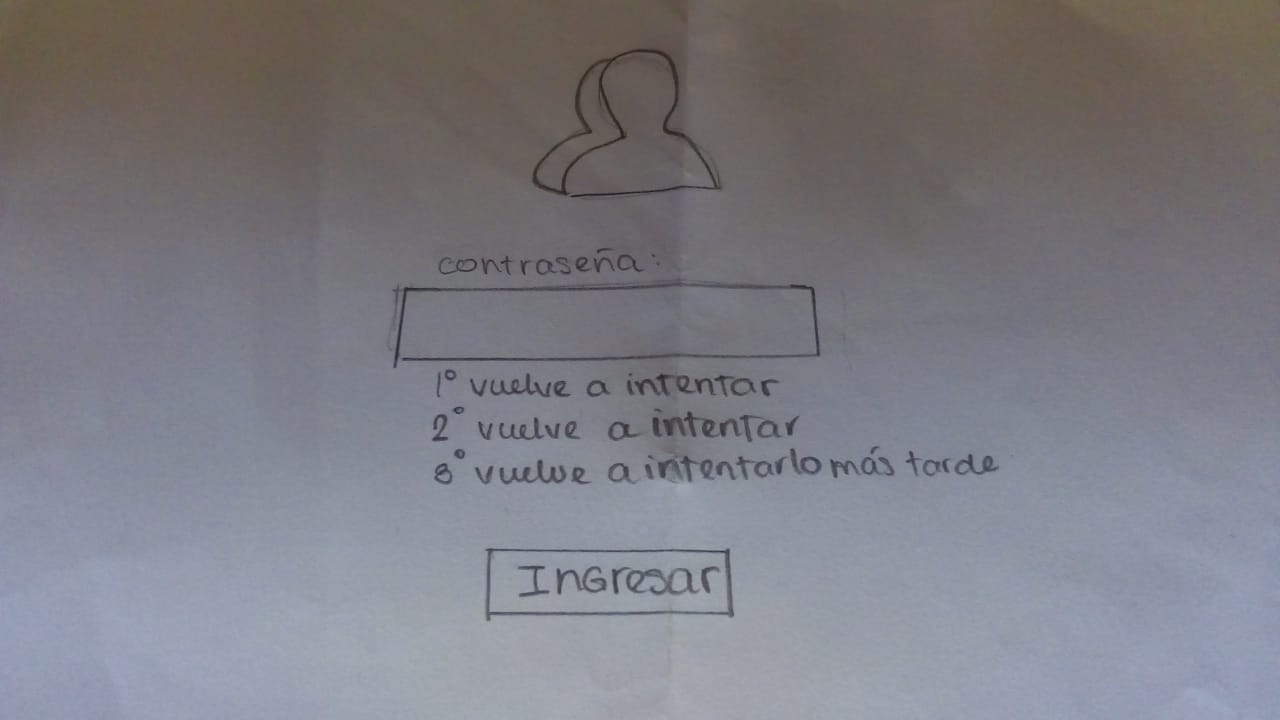 contraseña:
1° vuelve a intentar
2° vuelve a intentar
3° vuelve a intentarlo más tarde
Ingresar